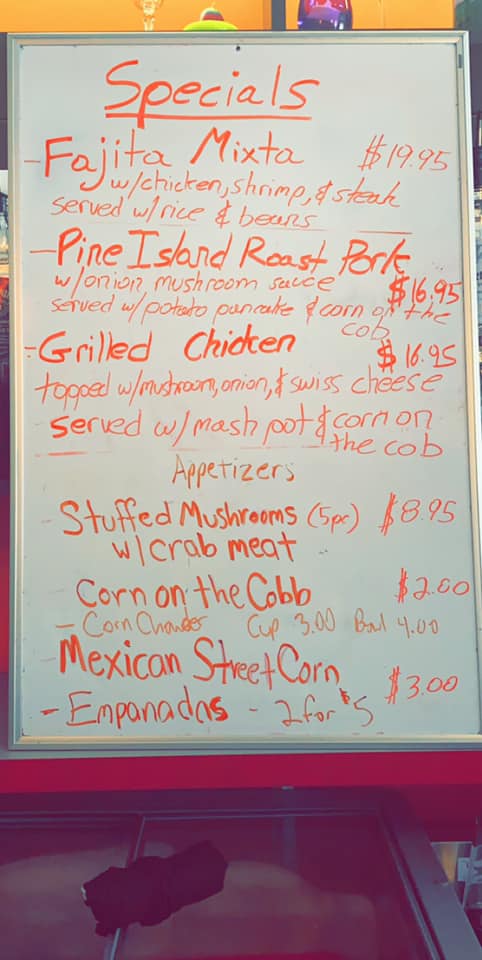 Specials
- Fajita Mixta $19.95
w/chicken, shrimp, & steak
served w/rice & beans
- Pine Island Roast Pork
w/onion mushroom sauce $16.95
served w/potato pancake & corn on the
cob
- Grilled Chicken $16.95
topped w/mushroom, onion, & swiss cheese
served w/ mash pot & corn on
the cob
Appetizers
- Stuffed Mushrooms (5pc) $8.95
w/crab meat
- Corn on the Cobb $2.00
- Corn Chowder Cup 3.00 Bowl 4.00
- Mexican Street Corn
$3.00
- Empanadas - 2 for $5